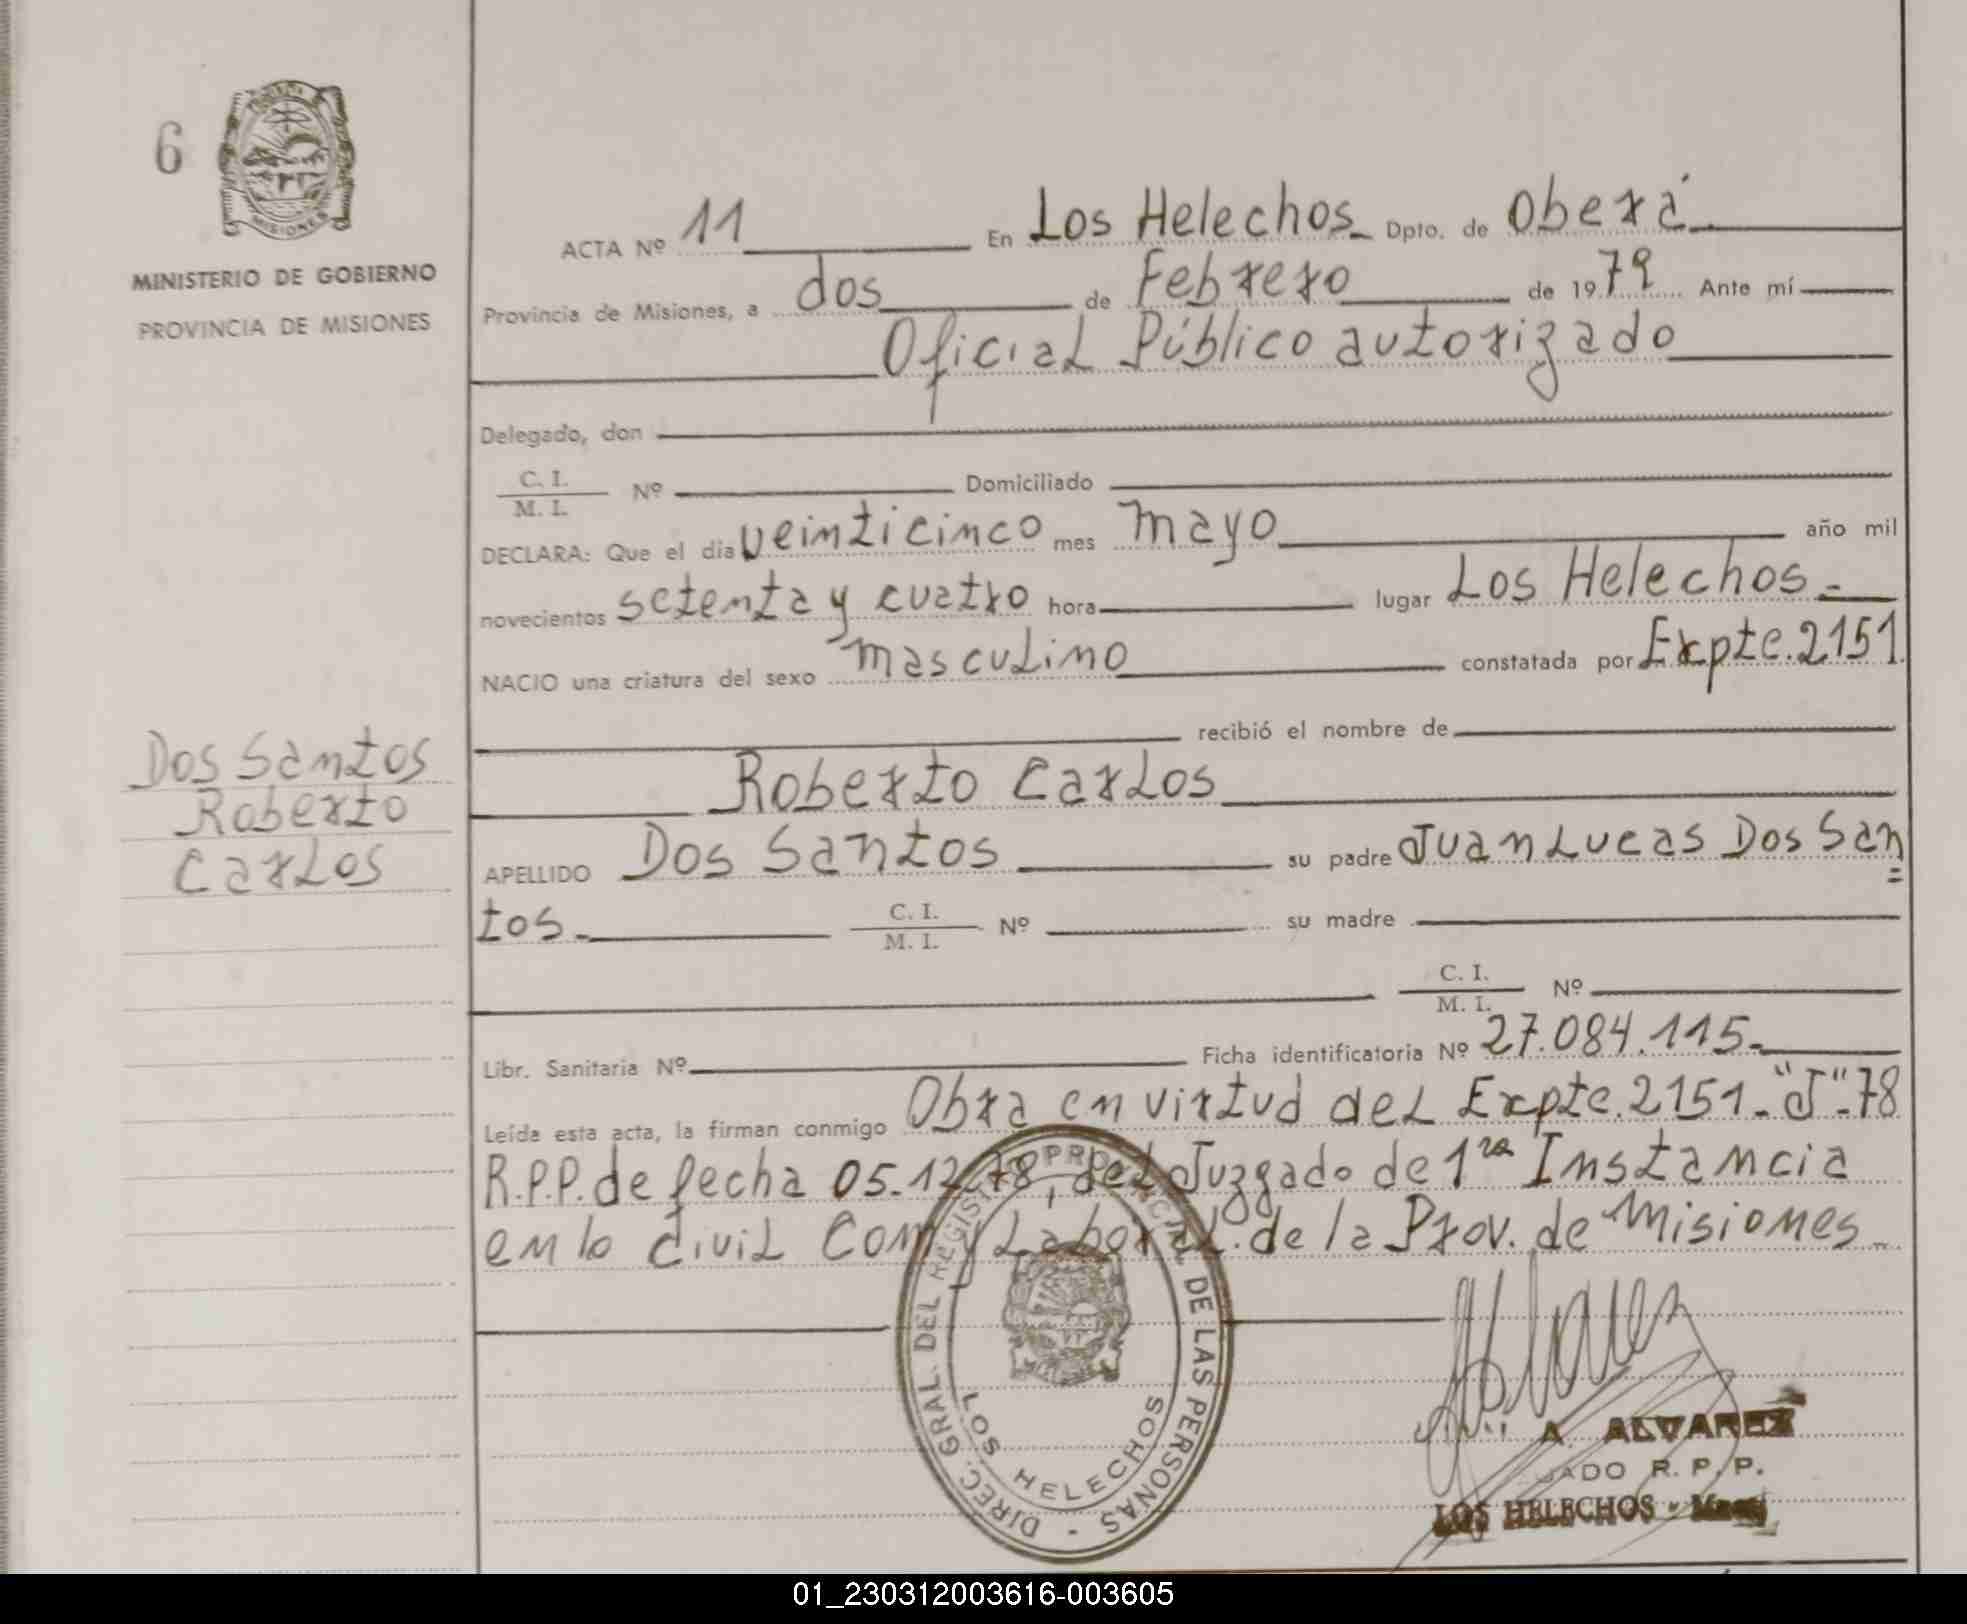 6
MISIONES
MINISTERIO DE GOBIERNO
PROVINCIA DE MISIONES
ACTA Nº 11 En Los Helechos Dpto. de Oberá
Provincia de Misiones, a dos de Febrero de 1979 Ante mí
Oficial Público autorizado
Delegado, don
C. I.
M. I. Nº Domiciliado
DECLARA: Que el dia veinticinco mes mayo año mil
novecientos setenta y cuatro hora lugar Los Helechos.-
NACIO una criatura del sexo masculino constatada por Expte.2151.
recibió el nombre de
Roberto Carlos
APELLIDO Dos Santos su padre Juan Lucas Dos San=
tos.- C. I. M. I. Nº su madre
C. I. M. I. Nº
Libr. Sanitaria Nº Ficha identificatoria Nº 27.084.115.-
Leída esta acta, la firman conmigo Obra en virtud del Expte.2151-"J"-78
R.P.P. de fecha 05.12.78 del Juzgado de 1ra Instancia
en lo civil Com y Laboral. de la Prov. de Misiones.-
Dos Santos
Roberto
Carlos
DIREC. GRAL. DEL REGISTRO PROVINCIAL DE LAS PERSONAS -
LOS HELECHOS
A. ALVAREZ
R. P. P.
LOS HELECHOS -
01_230312003616-003605